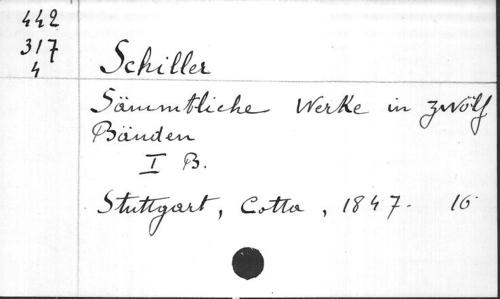 442
317
4
Schiller
Sämmtliche Werke in zwölf
Bänden
I B.
Stuttgart, Cotta, 1847. 16·